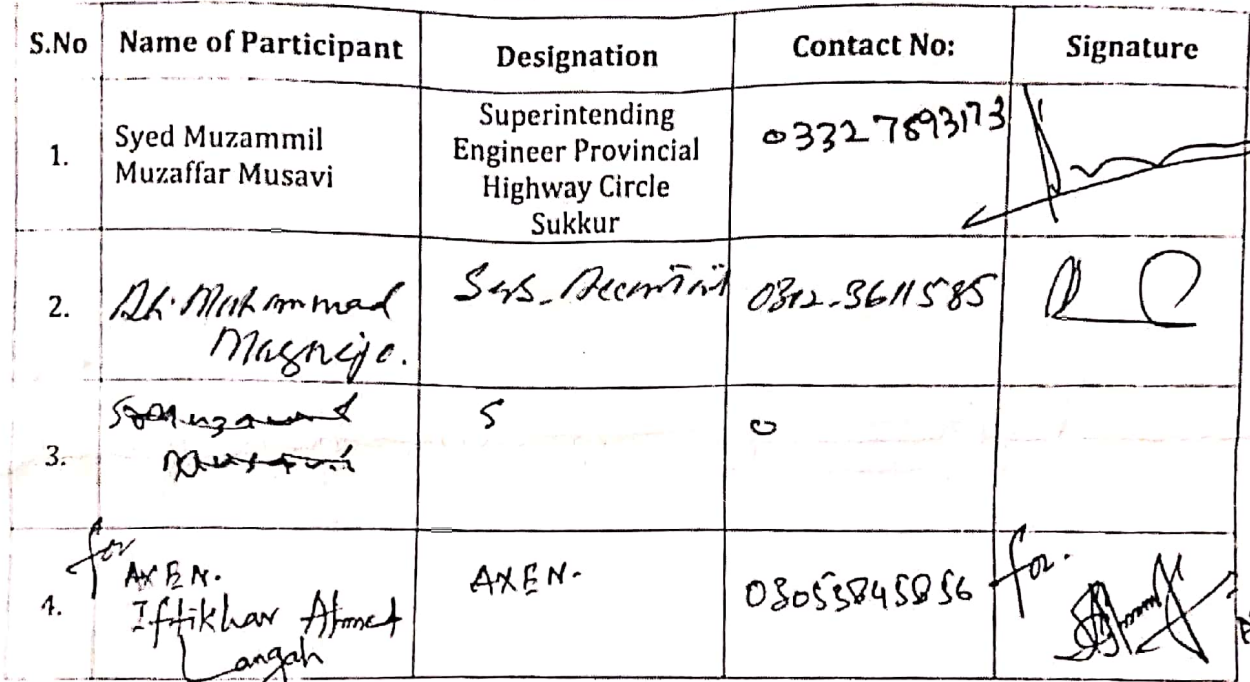 S.No Name of Participant Designation Contact No: Signature
1. Syed Muzammil Muzaffar Musavi
Superintending
Engineer Provincial
Highway Circle
Sukkur
03327893173
2. Muhammad
Magnejo.
0312-3611585
3.
S
0
4. for
AXEN.
Iftikhar Ahmed
Langah
AXEN.
03053845856
for.